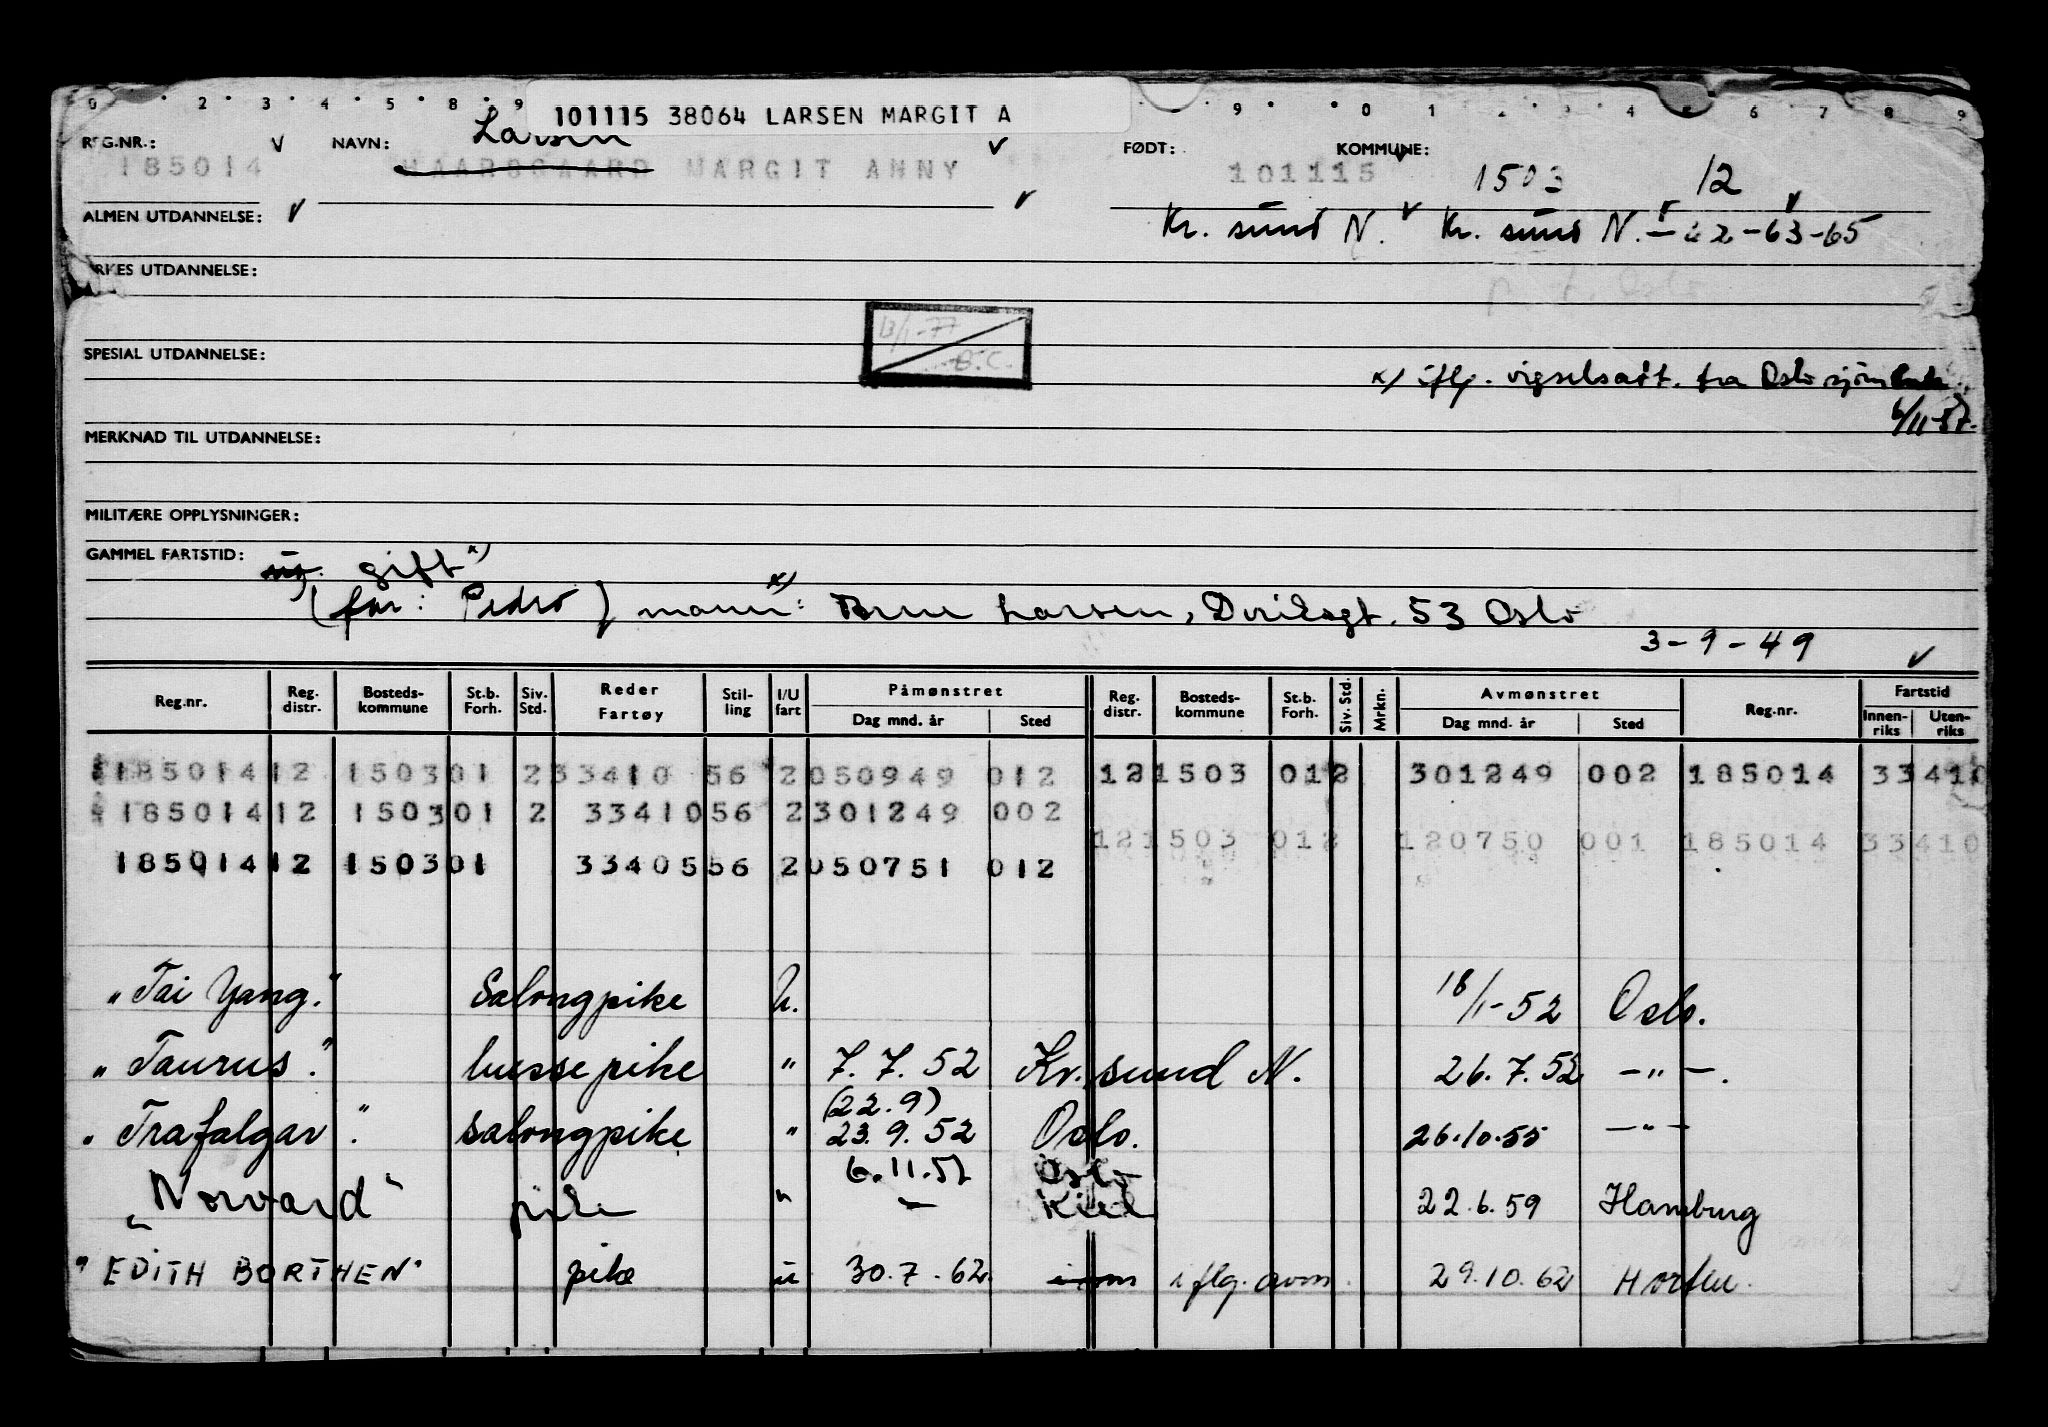 0 2 3 4 5 8 9 9 0 1 2 3 4 5 6 7 8 9
101115 38064 LARSEN MARGIT A
REG.NR.: NAVN: Larsen FØDT: KOMMUNE:
185014 HAARSGAARD MARGIT ANNY 101115 1503 12
ALMEN UTDANNELSE: Kr. sund N. Kr. sund N. - 62-63-65
YRKES UTDANNELSE:
13/1-77
B.C.
SPESIAL UTDANNELSE:
x) iflg. vigselsatt. fra Oslo
6/11-57.
MERKNAD TIL UTDANNELSE:
MILITÆRE OPPLYSNINGER:
GAMMEL FARTSTID: gift x)
(far: Pedro) mann x): Arne Larsen, 53 Oslo
3-9-49
Reg.nr. Reg. distr. Bosteds- kommune St.b. Forh. Siv. Std. Reder Fartøy Stil- ling I/U fart Påmønstret Dag mnd. år Sted Reg. distr. Bosteds- kommune St.b. Forh. Siv. Std. Mrkn. Avmønstret Dag mnd. år Sted Reg.nr. Fartstid Innen- riks Uten- riks
185014 12 1503 01 2 33410 56 2 050949 012 12 1503 01 2 301249 002 185014 33410
185014 12 1503 01 2 33410 56 2 301249 002
12 1503 01 2 120750 001 185014 33410
185014 12 1503 01 33405 56 2 050751 012
"Tai Yang." Salongpike U. 18/1-52 Oslo.
"Taurus". bussepike " 7.7.52 Kr.sund N. 26.7.52 -"-.
(22.9)
"Trafalgar". salongpike " 23.9.52 Oslo. 26.10.55 -"-
6.11.57 Oslo
"Norvard" pike " - Kiel 22.6.59 Hamburg
"EDITH BORTHEN" pike u 30.7.62. iflg. avm. 29.10.62 Horten.